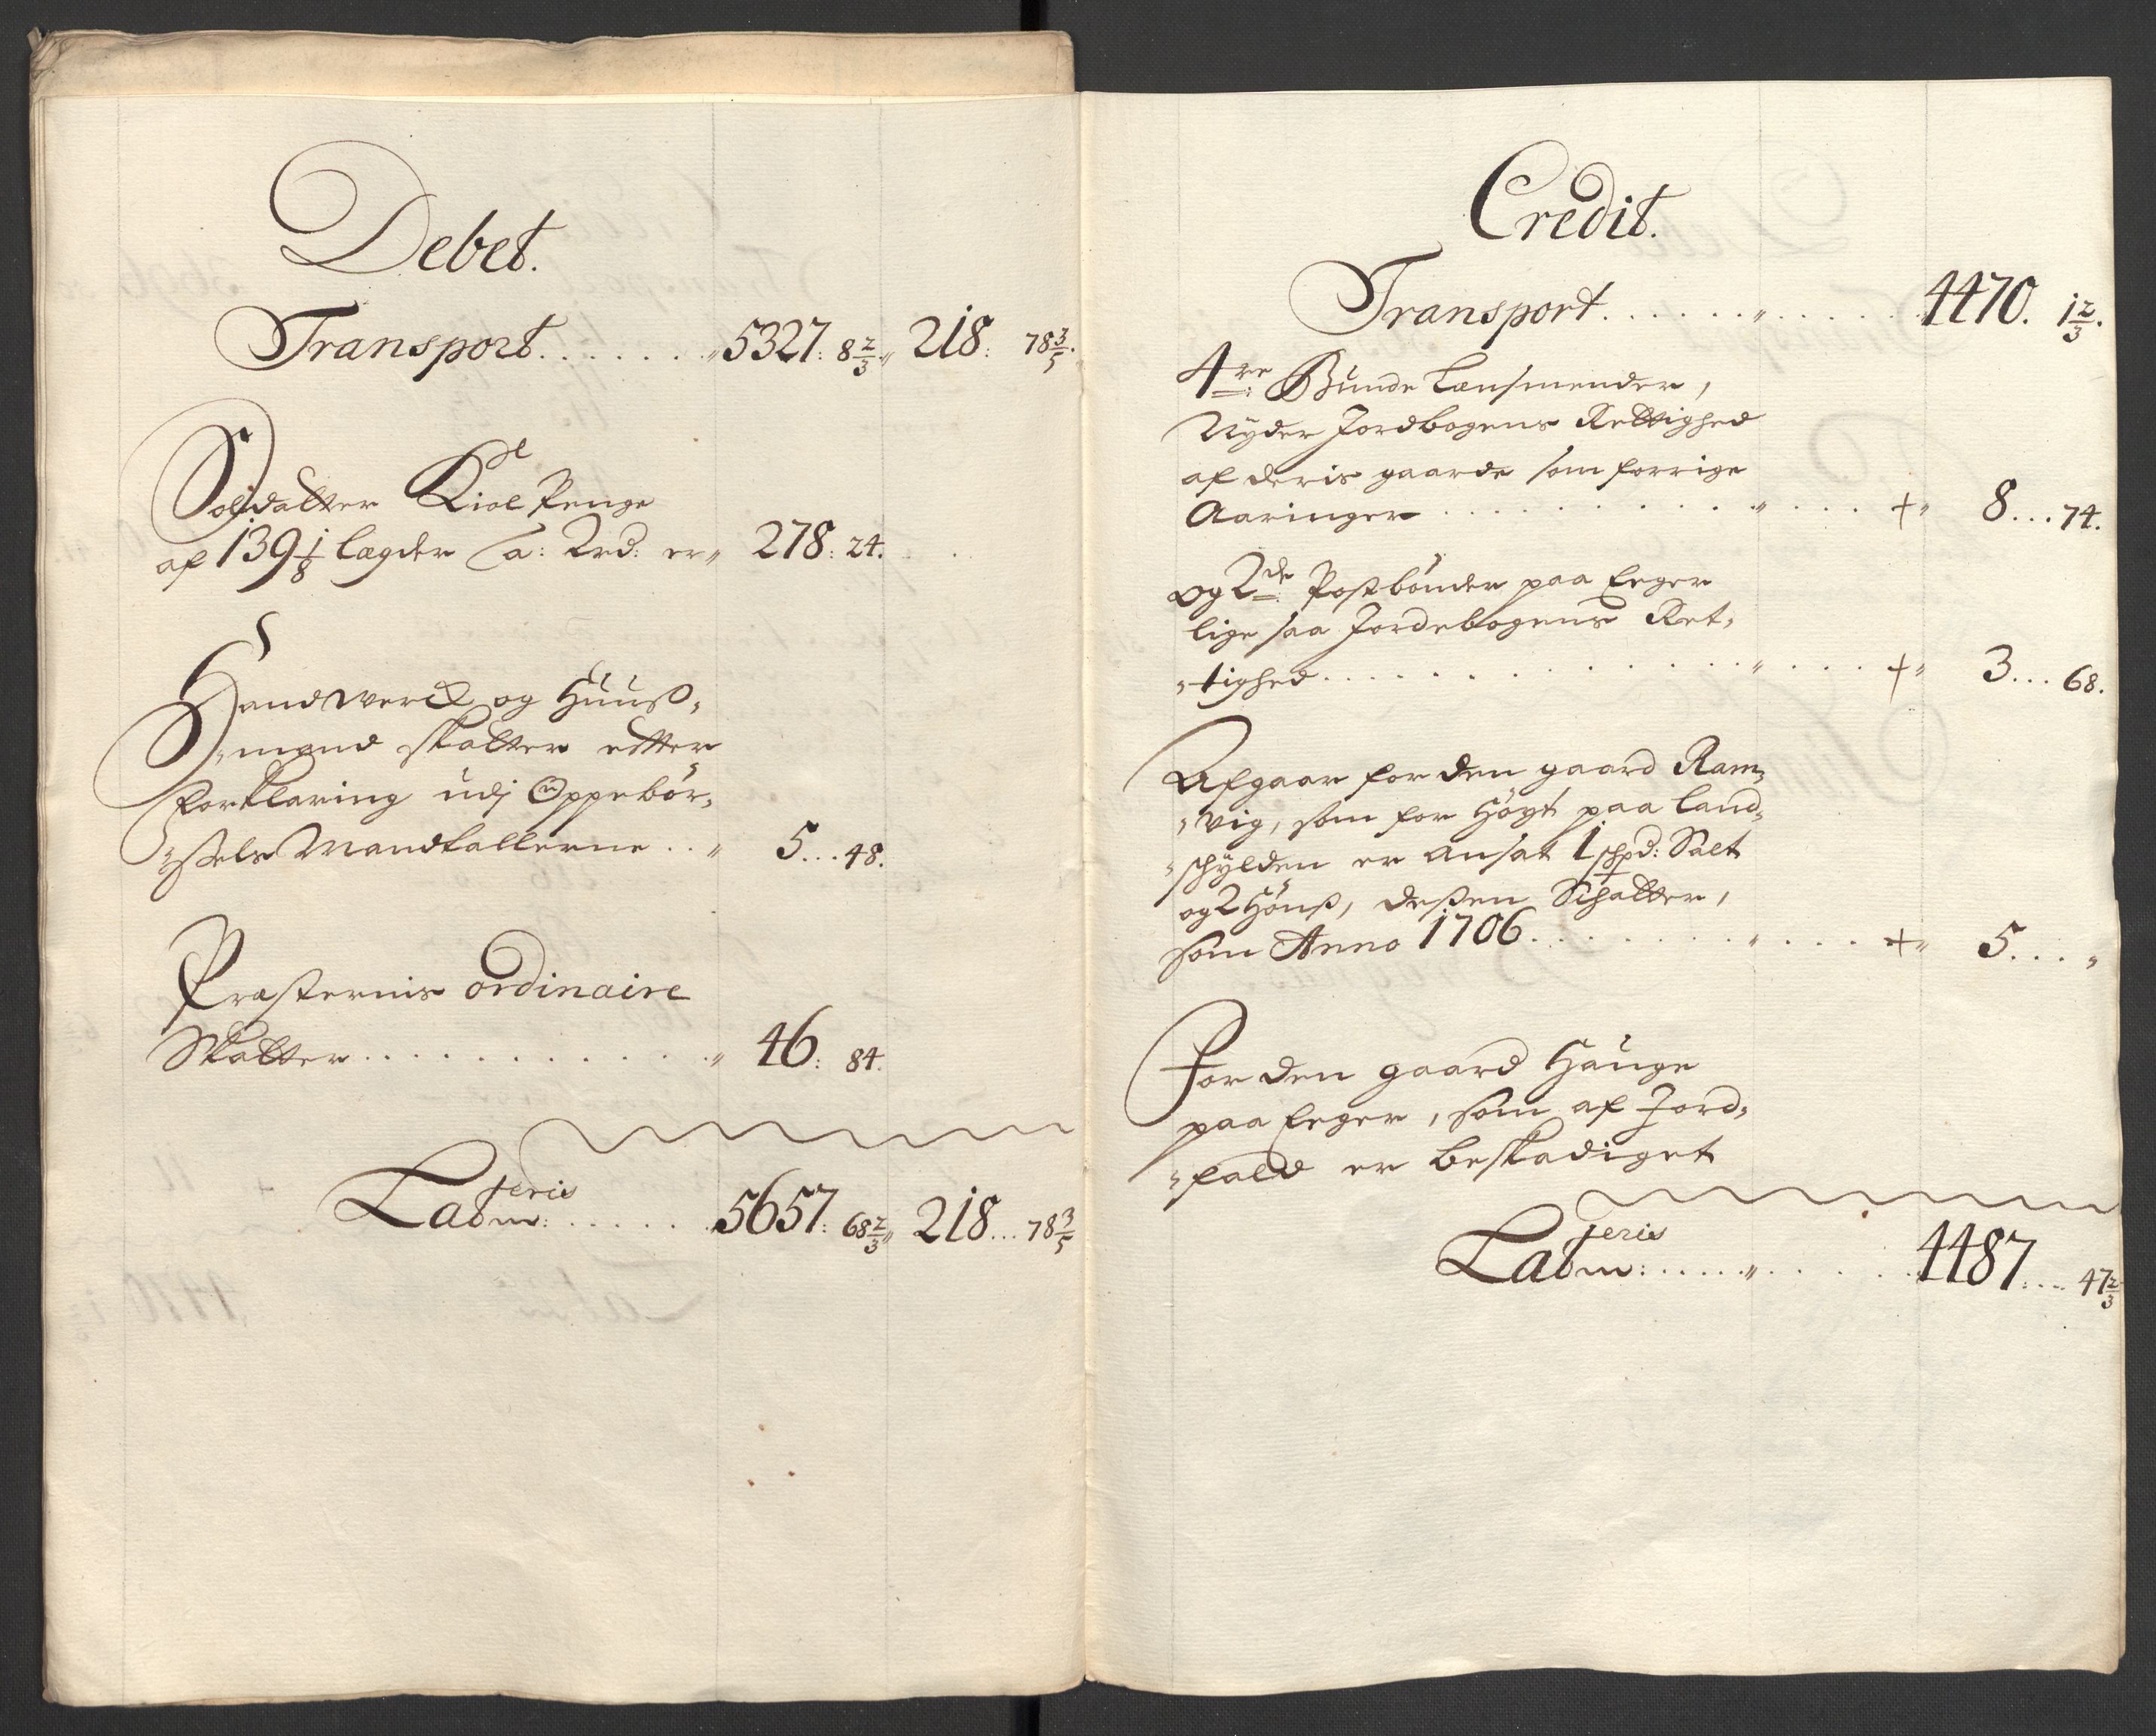 Debet.
Transport. . . . . . . „ 5327: 8 2/3 „ 218: 78 3/5.
Soldatter Kiol Penge
af 139 1/8 lægder a: 2rd: er „ 278: 24.
Handwerck og Huuss„
„mænd skatter efter
forklaring udj Oppebör„
„ssels Mandtallerne . . „ 5...48.
Præsternis ordinaire
Skatter . . . . . . . . . . . . „ 46: 84.
Lateris
m: . . . . . 5657: 68 2/3 „ 218...78 3/5
Credit.
Transport. . . . . . „ . . . . . 4470. 1 2/3.
4re: Bunde Lænsmender,
Nyder Jordbogens Rettighed
af deris gaarde som forrige
Aaringer . . . . . . . . . . „ . . . + „ 8...74.
og 2de: Postbönder paa Eeger
lige saa Jordebogens Ret„
„tighed . . . . . . . . . . . . „ . . . + „ 3...68.
Afgaar for den gaard Ram„
„vig, som for Höyt paa land„
„schylden er ansat 1 schpd: Salt
og 2 Hönss, dessen Schatter,
som Anno 1706. . . . . . . . „ . . . + „ 5... „
For den gaard Hauge
paa Eeger, som af Jord„
„fald er beskadiget
Lateris
m: . . . . . „ . . . . . 4487...47 2/3